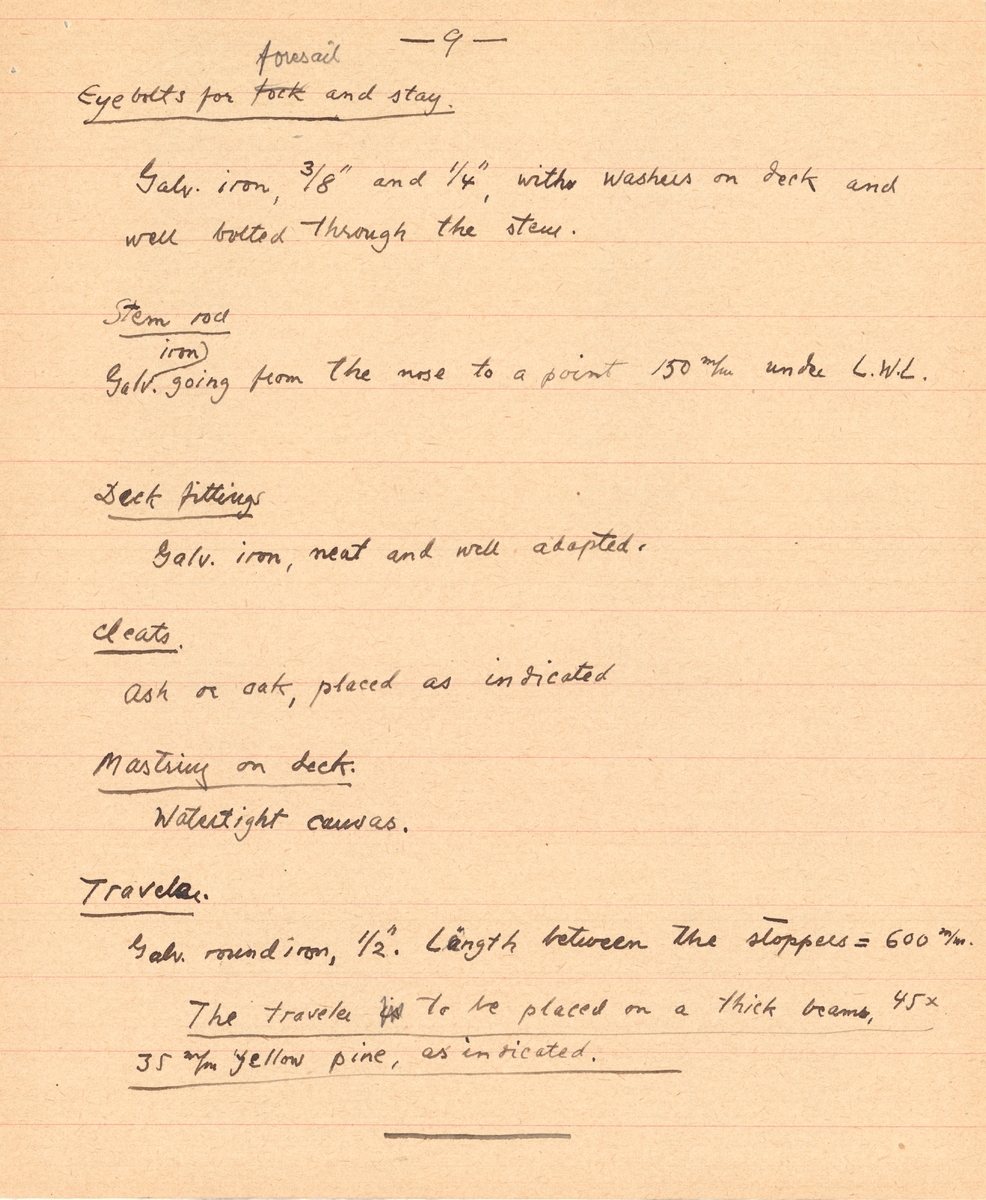 — 9 —
foresail
Eyebolts for fock and stay.
Galv. iron, 3/8" and 1/4", with washers on deck and
well bolted through the stem.
Stem rod
iron
Galv. going from the nose to a point 150 m/m under L.W.L.
Deck fittings
Galv. iron, neat and well adapted.
Cleats.
Ash or oak, placed as indicated
Mastring on deck.
Watertight canvas.
Traveler.
Galv. round iron, 1/2". Längth between the stoppers = 600 m/m.
The traveler is to be placed on a thick beam, 45x
35 m/m yellow pine, as indicated.